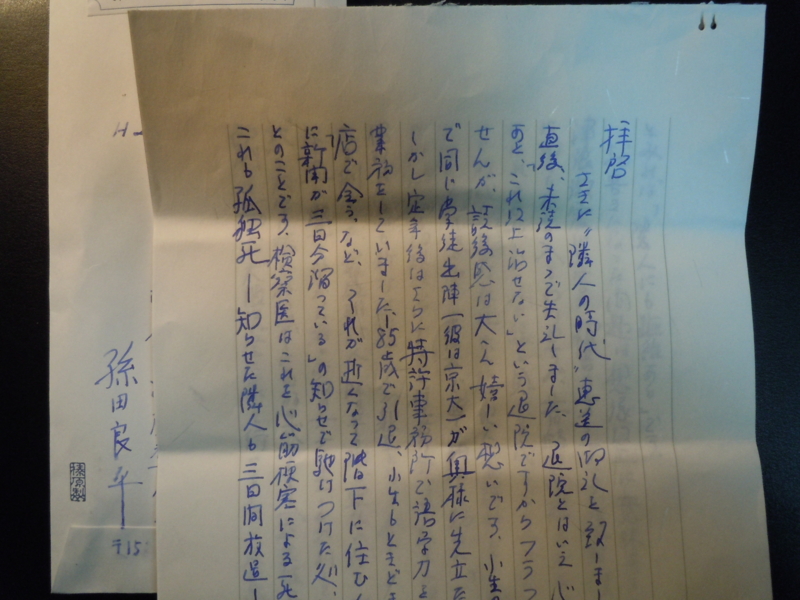 拝啓
さきに〝隣人の時代〟恵送の御礼と
直後、未読のまゝで失礼しました。退院とはいえ
「これ以上治せない」という退院ですからフラ
せんが、読後感は大へん嬉しい想いです。小生
で同じ学徒出陣(彼は京大)が奥様に先立た
しかし定年後はさらに特許事務所で語学力を
業務をしていました。85歳で引退、小生もときどき
店で会うなど、これが逝くなって階下に住む
に新聞が三日分溜っている」の知らせで馳けつけた処、
とのことです。検察医はこれを心筋梗塞による死
これも孤独死ー知らせた隣人も三日間放置ー
孫田良平
〒15